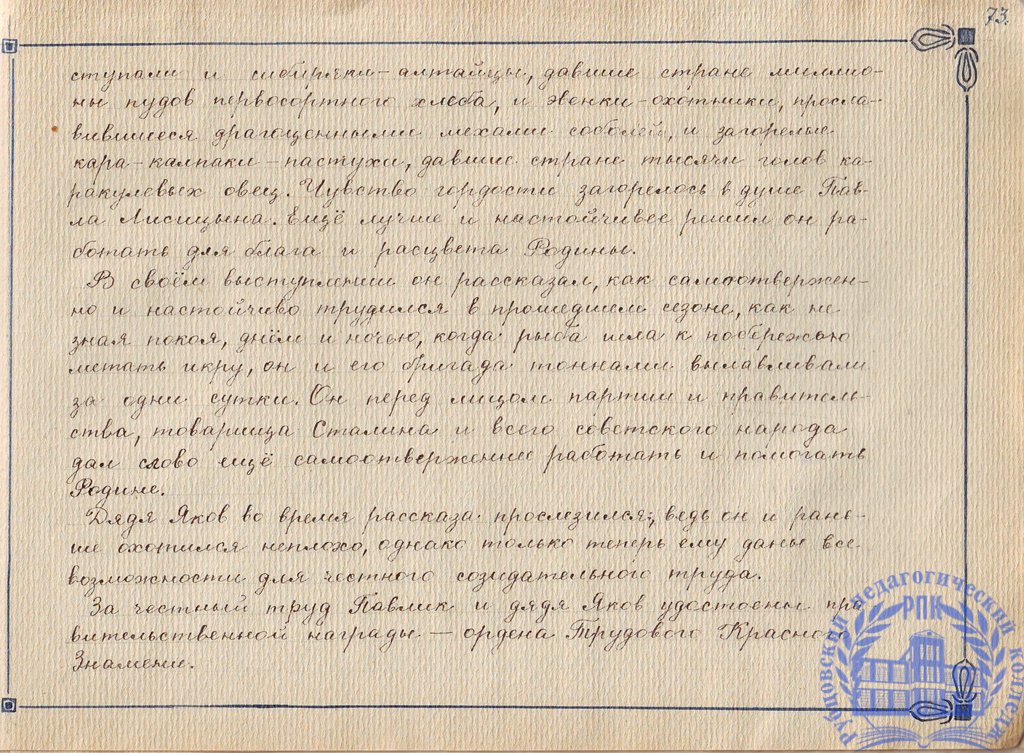 73.
ступали и сибиряки-алтайцы, давшие стране миллио-
ны пудов первосортного хлеба, и эвенки-охотники, просла-
вившиеся драгоценными мехами соболей, и загорелые
кара-калпаки-пастухи, давшие стране тысячи голов ка-
ракулевых овец. Чувство гордости загорелось в душе Пав-
ла Лисицына. Ещё лучше и настойчивее решил он ра-
ботать для блага и расцвета Родины.
В своём выступлении он рассказал, как самоотвержен-
но и настойчиво трудился в прошедшем сезоне, как не
зная покоя, днём и ночью, когда рыба шла к побережью
метать икру, он и его бригада тоннами вылавливали
за одни сутки. Он перед лицом партии и правитель-
ства, товарища Сталина и всего советского народа
дал слово ещё самоотверженнее работать и помогать
Родине.
Дядя Яков во время рассказа прослезился, ведь он и рань-
ше охотился неплохо, однако только теперь ему даны все
возможности для честного созидательного труда.
За честный труд Павлик и дядя Яков удостоены пра
вительственной награды — ордена Трудового Красного
Знамени.
Рубцовский педагогический колледж
РПК